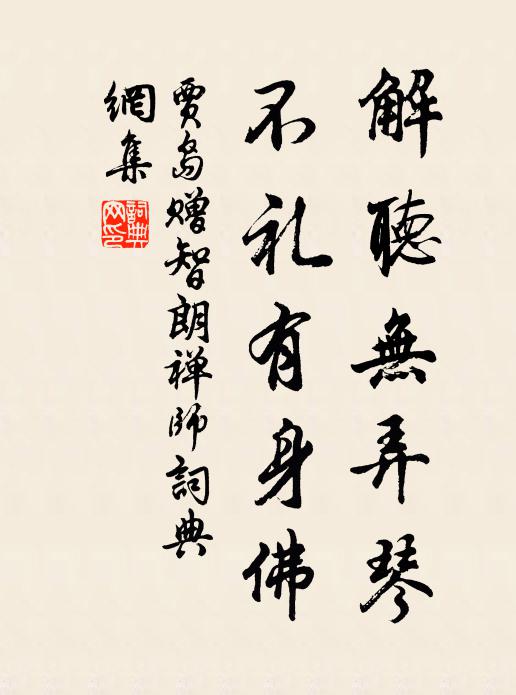 解聽無弄琴
不礼有身佛
賈島赠智朗禅师詞典
網集
詞典
网印